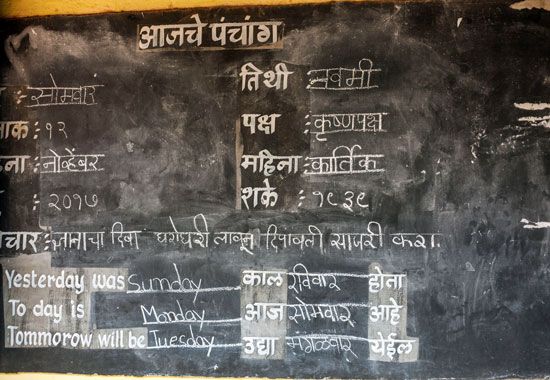 आजचे पंचांग
र : सोमवार तिथी : नवमी
नाक : १२ पक्ष : कृष्णपक्ष
हना : नोव्हेंबर महिना : कार्तिक
: २०१७ शके : १९३९
चार : ज्ञानाचा दिवा घरोघरी लावून दिपावली साजरी करा.
Yesterday was Sunday काल रविवार होता
To day is Monday आज सोमवार आहे
Tommorow will be Tuesday उद्या मंगळवार येईल